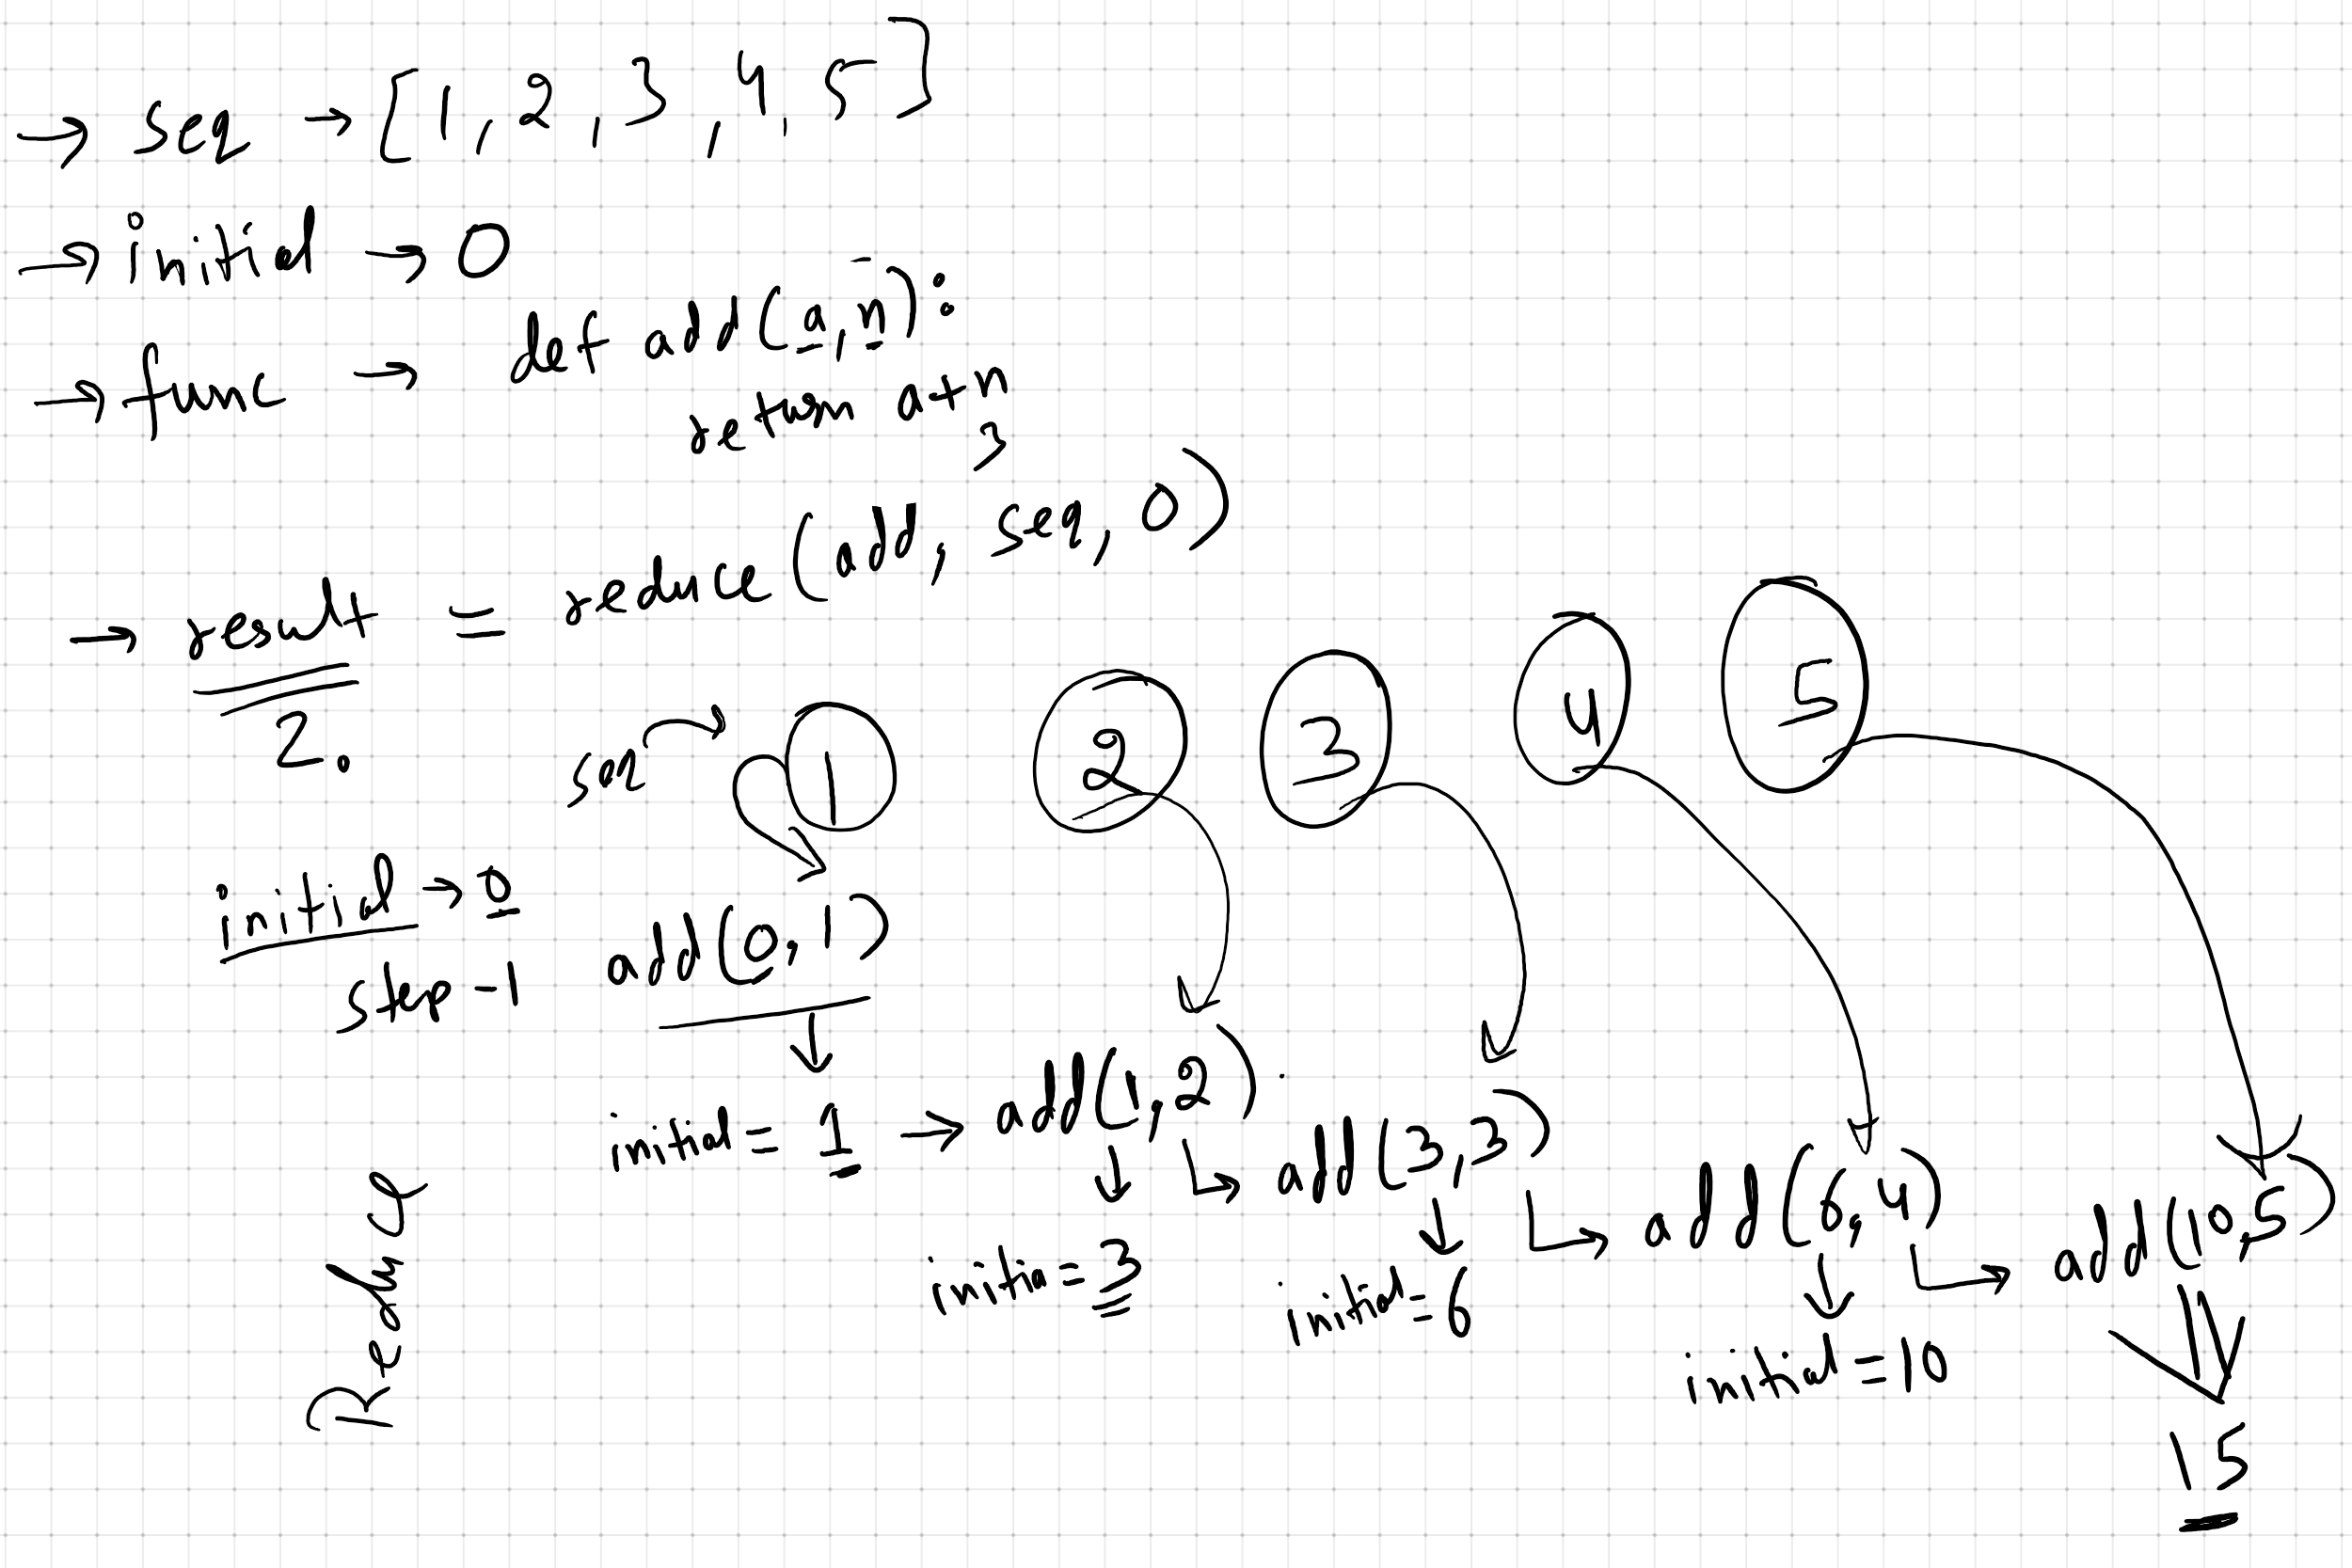 → seq → [1, 2, 3, 4, 5]
→ initial → 0
→ func → def add(a, n):
return a+n
→ result = reduce(add, seq, 0)
2.
seq 1 2 3 4 5
initial → 0
step-1 add(0, 1)
initial = 1 → add(1, 2)
add(3, 3)
add(6, 4)
add(10, 5)
initia = 3
initial = 6
initial = 10
15
Reduce